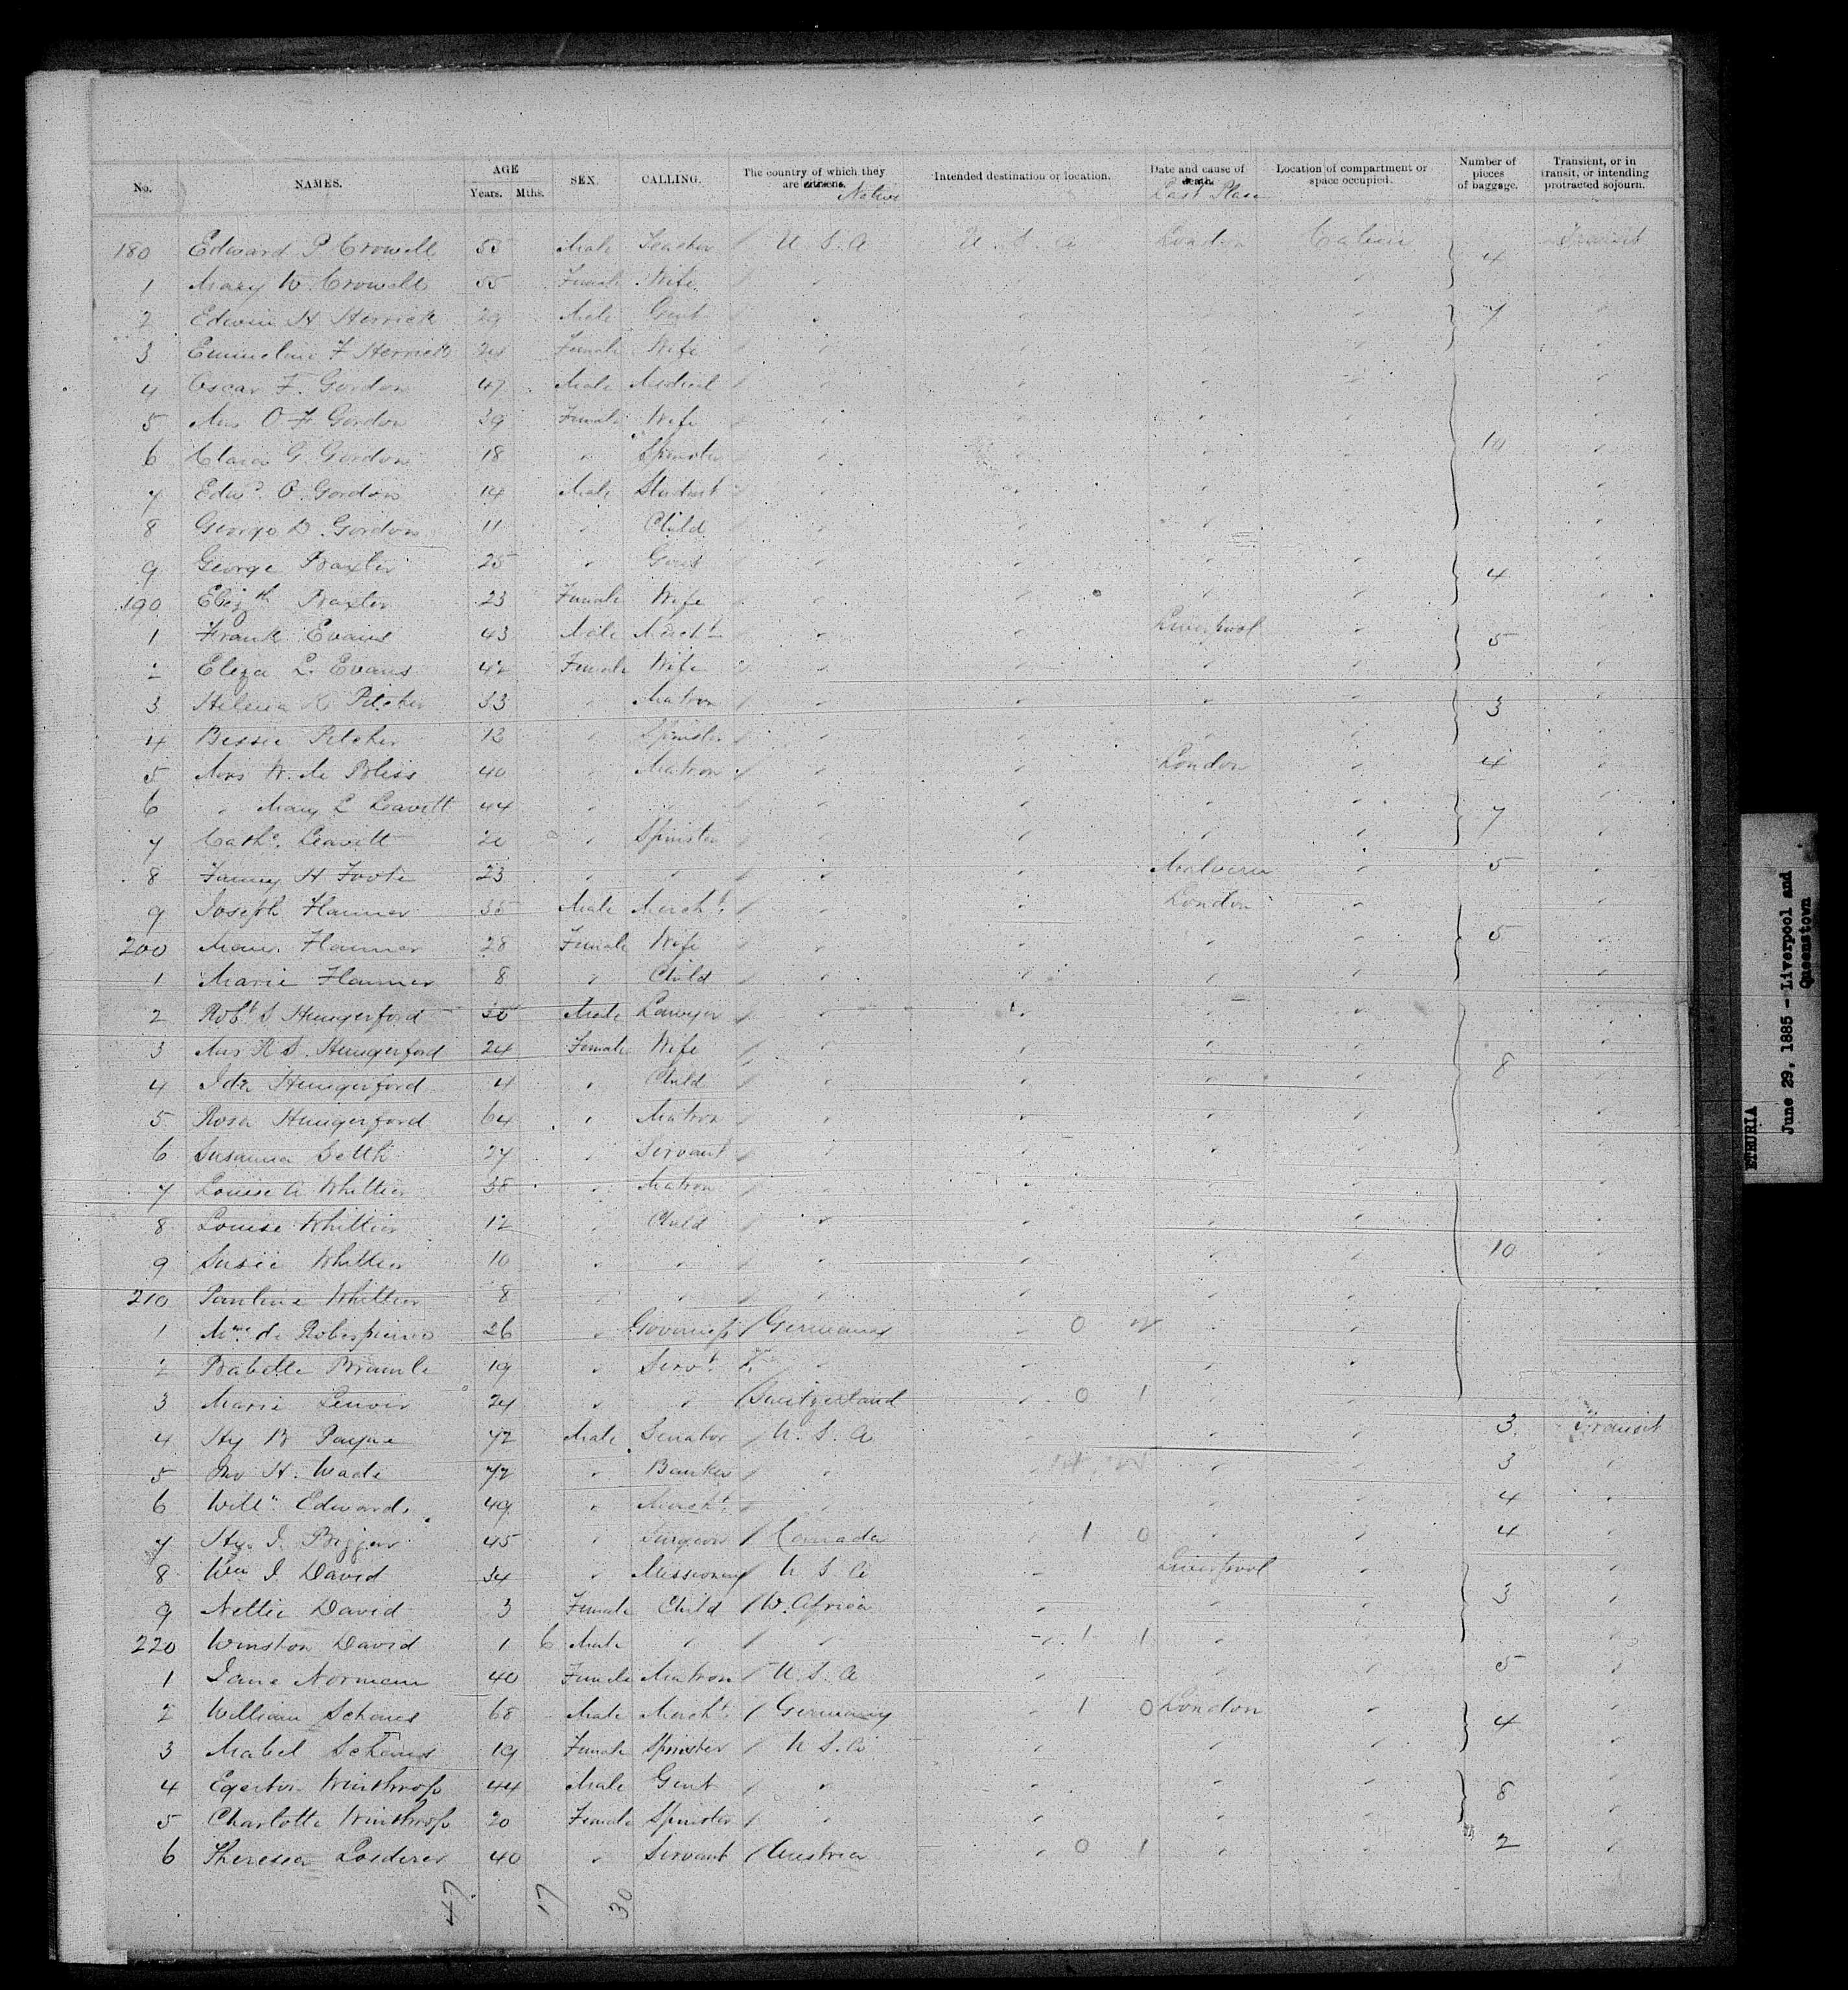 No. NAMES. AGE Years. Mths. SEX. CALLING. The country of which they are citizens. Native Intended destination or location. Date and cause of death. Last Place Location of compartment or space occupied. Number of pieces of baggage. Transient, or in transit, or intending protracted sojourn.
180 Edward P Crowell 55 Male Teacher / U. S. A U. S. A London Cabin 4 Transit
1 Mary W. Crowell 55 Female Wife / " " " " "
2 Edwin H Herrick 29 Male Gent " " " " 7 "
3 Emmeline F Herrick 24 Female Wife " " " " "
4 Oscar F. Gordon 47 Male Medical / " " " " "
5 Mrs O F Gordon 39 Female Wife / " " " " "
6 Clara G. Gordon 18 " Spinster / " " " " 10 "
7 Edwd. O. Gordon 14 Male Student " " " " "
8 George D. Gordon 11 " Child / " " " " "
9 George Baxter 25 " Gent / " " " " 4 "
190 Elizth Baxter 23 Female Wife / " " " " "
1 Frank Evans 43 Male Mercht / " " Liverpool " 5 "
2 Eliza L. Evans 42 Female Wife " " " " "
3 Helena K Pitcher 33 " Matron / " " " " 3 "
4 Bessie Pitcher 13 " Spinster / " " " " "
5 Mrs W. M Bliss 40 " Matron / " " London " 4 "
6 " Mary L Leavitt 44 " " / " " " " 7 "
7 Cathe. Leavitt 20 " Spinster / " " " " "
8 Fanny H Foote 23 " " / " " Malvern " 5 "
9 Joseph Hanner 35 Male Mercht. / " " London " "
200 Hanner 28 Female Wife / " " " " 5 "
1 Marie Hanner 8 " Child / " " " " "
2 Robt S Hungerford 30 Male Lawyer / " " " " "
3 Mrs R S. Hungerford 24 Female Wife / " " " " 8 "
4 Ida Hungerford 4 " Child / " " " " "
5 Rosa Hungerford 64 " Matron / " " " " "
6 Susanna 27 " Servant / " " " " "
7 Louise A Whittier 38 " Matron / " " " " "
8 Louise Whittier 12 " Child / " " " " "
9 Susie Whittier 10 " " / " " " " 10 "
210 Pauline Whittier 8 " " / " " " " "
1 Mme de Robespierre 26 " Governess / Germany " 0 " "
2 Babette 19 " Servt. " " " "
3 Marie Lenoir 24 " " / Switzerland " 0 1 " "
4 Hy B Payne 72 Male Senator / U. S. A " " " 3 Transit
5 Jno H. Wade 72 " Banker / " " " " 3 "
6 Willm Edwards 49 " Mercht. / " " " " 4 "
7 Hy. J. Biggar 45 " Surgeon / Canada " 1 0 " " 4 "
8 Wm J. David 34 " Missionary / U S A " Liverpool " "
9 Nettie David 3 Female Child / W. Africa " " " 3 "
220 Winston David 1 6 Male " / " " 1 1 " " "
1 Jane Norman 40 Female Matron / U. S. A " " " 5 "
2 William Schaus 68 Male Mercht. / Germany " 1 0 London " 4 "
3 Mabel Schaus 19 Female Spinster / U S. A " " " "
4 Egerton Winthrop 44 Male Gent / " " " " 8 "
5 Charlotte Winthrop 20 Female Spinster / " " " " "
6 Theresa Losderer 40 " Servant / Austria " 0 1 " " 2 "
47 17 30
ETRURIA
June 29, 1885 - Liverpool and
Queenstown